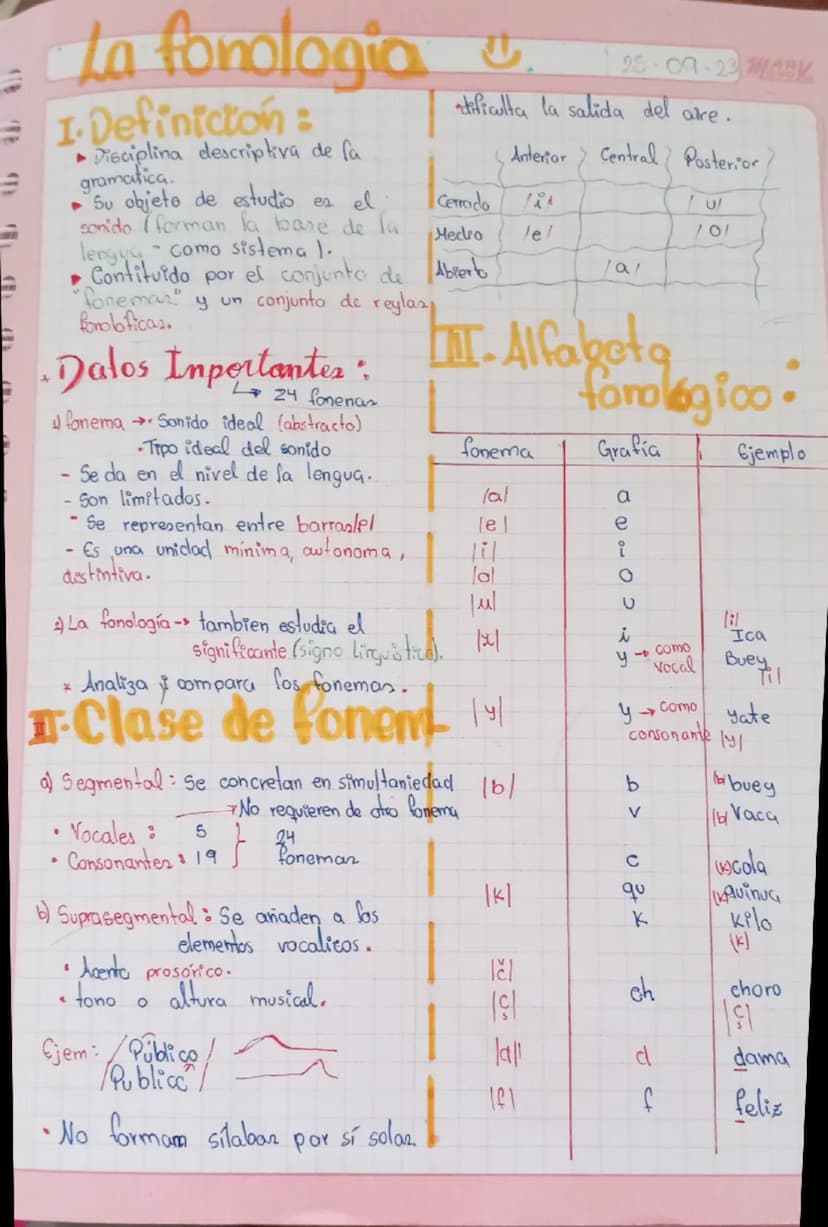 La fonologia
25-09-23
I. Definición:
▸ Disciplina descriptiva de la
gramatica.
▸ Su objeto de estudio es el
sonido (forman la base de la
lengua - como sistema).
▸ Contituido por el conjunto de
"fonemas" y un conjunto de reglas
* Datos Inportantes:
↳ 24 fonemas
1) fonema → • Sonido ideal (abstracto)
• Tipo ideal del sonido
- Se da en el nivel de la lengua.
- Son limitados.
- Se representan entre barras/e/
- Es una unidad mínima, autonoma,
destintiva.
2) La fonología → tambien estudia el
significante (signo linguistico).
* Analiza y compara los fonemas.
II. Clase de fonem
a) Segmental: Se concretan en simultaniedad
→ No requieren de otro fonema
• Vocales: 5 } 24
• Consonantes: 19 } fonemas
b) Suprasegmental: Se añaden a los
elementos vocalicos.
• Acento prosórico.
• tono o altura musical.
Ejem: /Público/
/Publicó/
• No forman sílabas por sí solas.
dificulta la salida del aire.
Anterior Central Posterior
Cerrado /i/ /u/
Medio /e/ /o/
Abierto /a/
III. Alfabeto
fonológico:
fonema Grafía Ejemplo
/a/ a
/e/ e
/i/ i
/o/ o
/u/ u
/i/
i Ica
y → como vocal Buey
/i/
/y/ y → como yate
consonante /y/
/b/ b /b/ buey
v /b/ Vaca
c /k/ cola
/k/ qu /k/ Quinua
k kilo
(k)
/č/
/ç/ ch choro
/ç/
/d/ d dama
/f/ f feliz